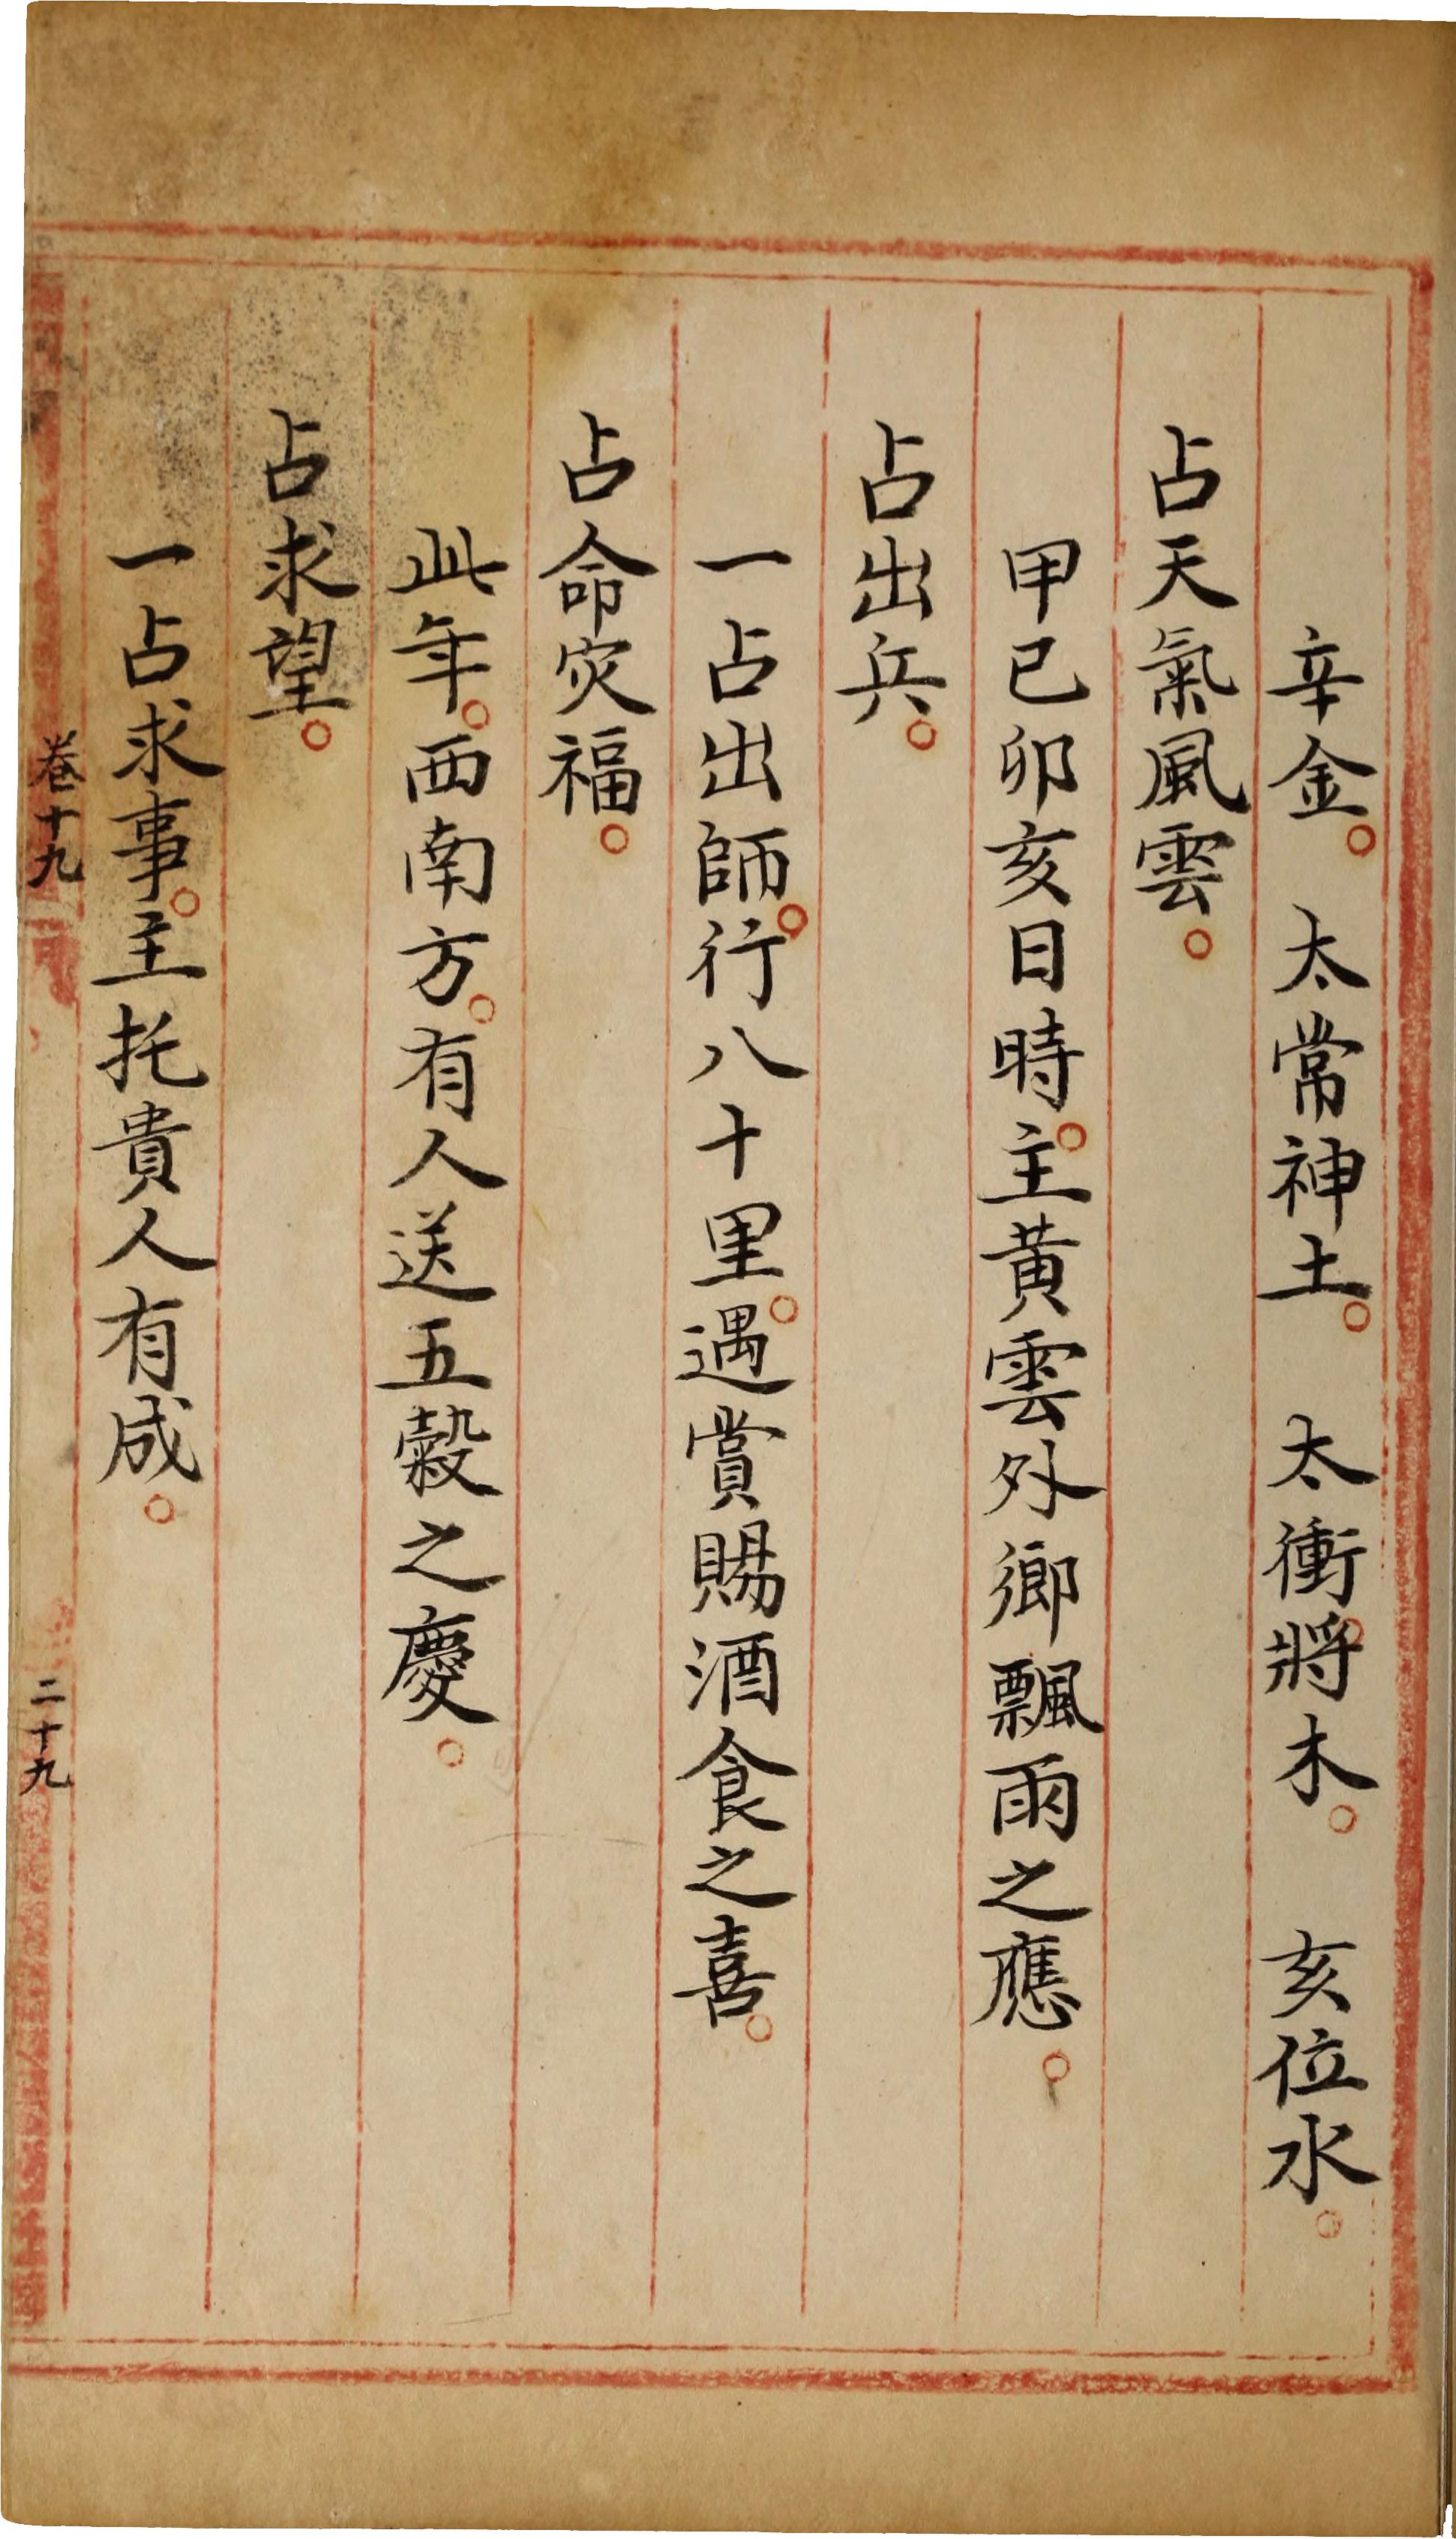 辛金。太常神土。太衝將木。亥位水。
占天氣風雲。
甲已卯亥日時。主黄雲外鄉飄雨之應。
占出兵。
一占出師。行八十里。遇賞賜酒食之喜。
占命灾福。
此年。西南方。有人送五糓之慶。
占求望。
一占求事。主托貴人有成。
卷十九
二十九